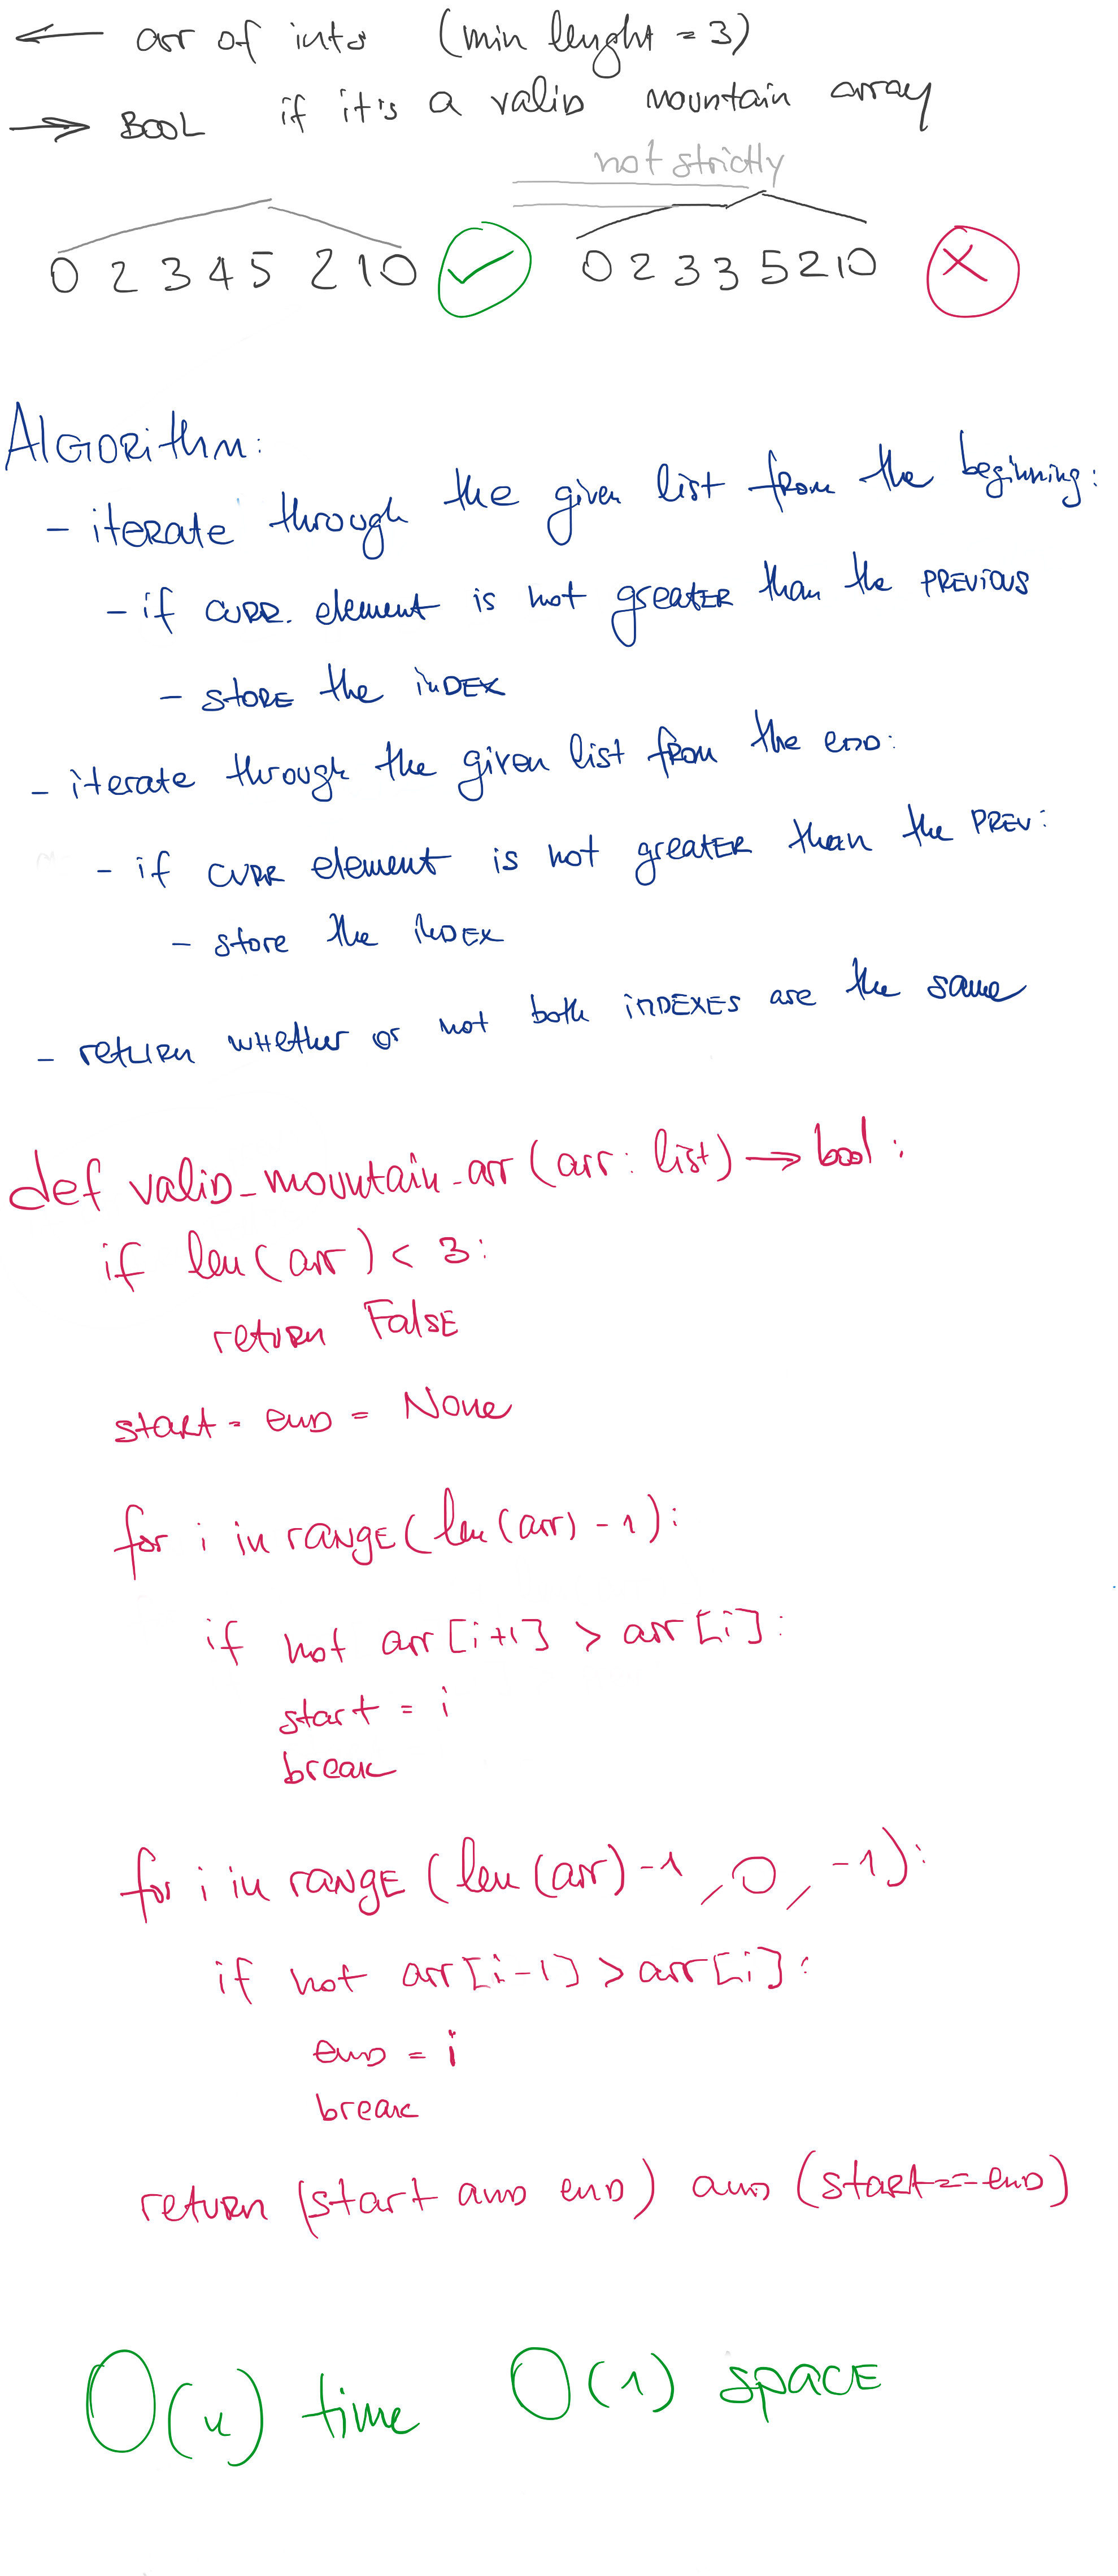 ← arr of ints (min lenght = 3)
→ BOOL if it's a valid mountain array
not strictly
0 2 3 4 5 2 1 0 ✓ 0 2 3 3 5 2 1 0 ✗
Algorithm:
- iterate through the given list from the beginning:
- if curr. element is not greater than the previous
- store the index
- iterate through the given list from the end:
- if curr element is not greater than the prev:
- store the index
- return whether or not both indexes are the same
def valid_mountain_arr(arr: list) → bool:
if len(arr) < 3:
return False
start = end = None
for i in range(len(arr) - 1):
if not arr[i+1] > arr[i]:
start = i
break
for i in range(len(arr)-1, 0, -1):
if not arr[i-1] > arr[i]:
end = i
break
return (start and end) and (start == end)
O(n) time O(1) space